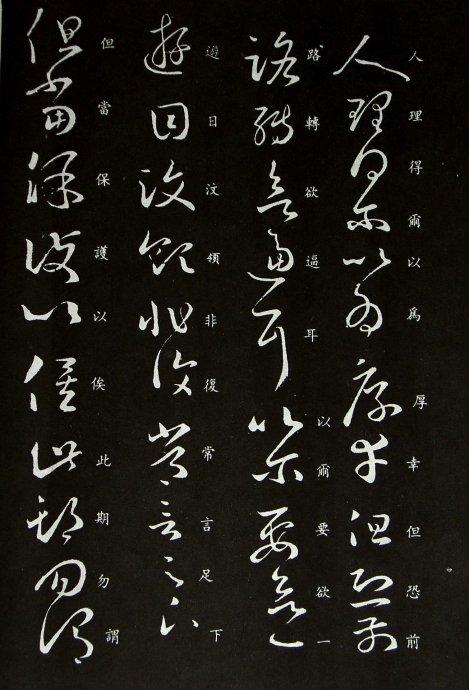 人理得爾以為厚幸但恐前
路轉欲逼耳以爾要欲一
遊目汶領非復常言足下
但當保護以俟此期勿謂